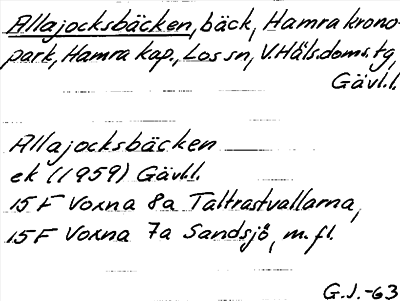 Allajocksbäcken, bäck, Hamra krono-
park, Hamra kap., Los sn, V. Häls. doms. tg,
Gävl.l.
Allajocksbäcken
ek (1959) Gävl.l.
15 F Voxna 8a Taltrastvallarna,
15 F Voxna 7a Sandsjö, m.fl.
G.J.-63